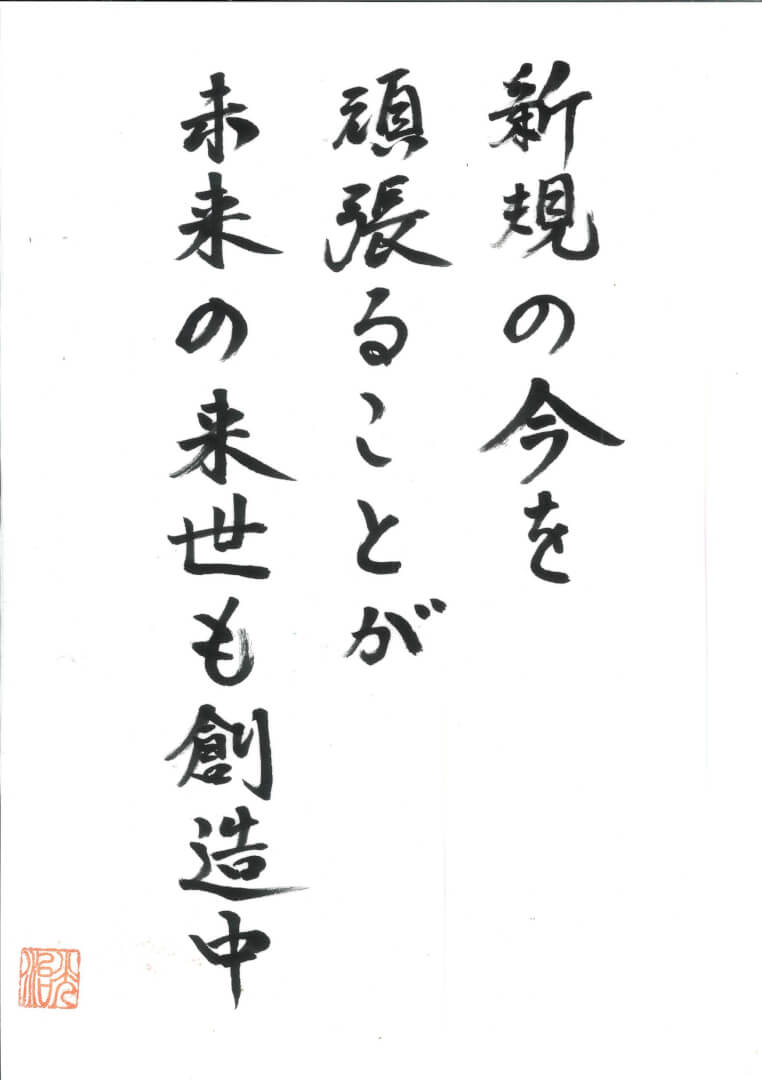 新規の今を
頑張ることが
未来の来世も創造中